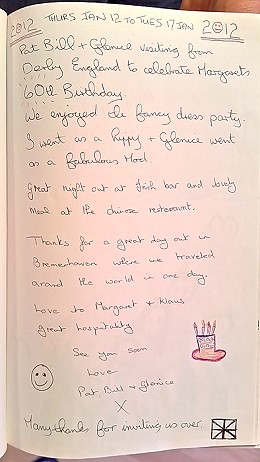 2012 THURS JAN 12 TO TUES 17 JAN 2012
Pat Bill + Glenice visiting from
Derby England to celebrate Margarets
60th Birthday.
We enjoyed the fancy dress party.
I went as a hippy + Glenice went
as a fabulous Mod
Great night out at Irish bar and lovely
meal at the chinese restaurant.
Thanks for a great day out in
Bremerhaven where we traveled
around the world in one day.
Love to Margaret & Klaus
Great hospitality
See you soon
Love
Pat, Bill & Glenice
X
Many thanks for inviting us over.